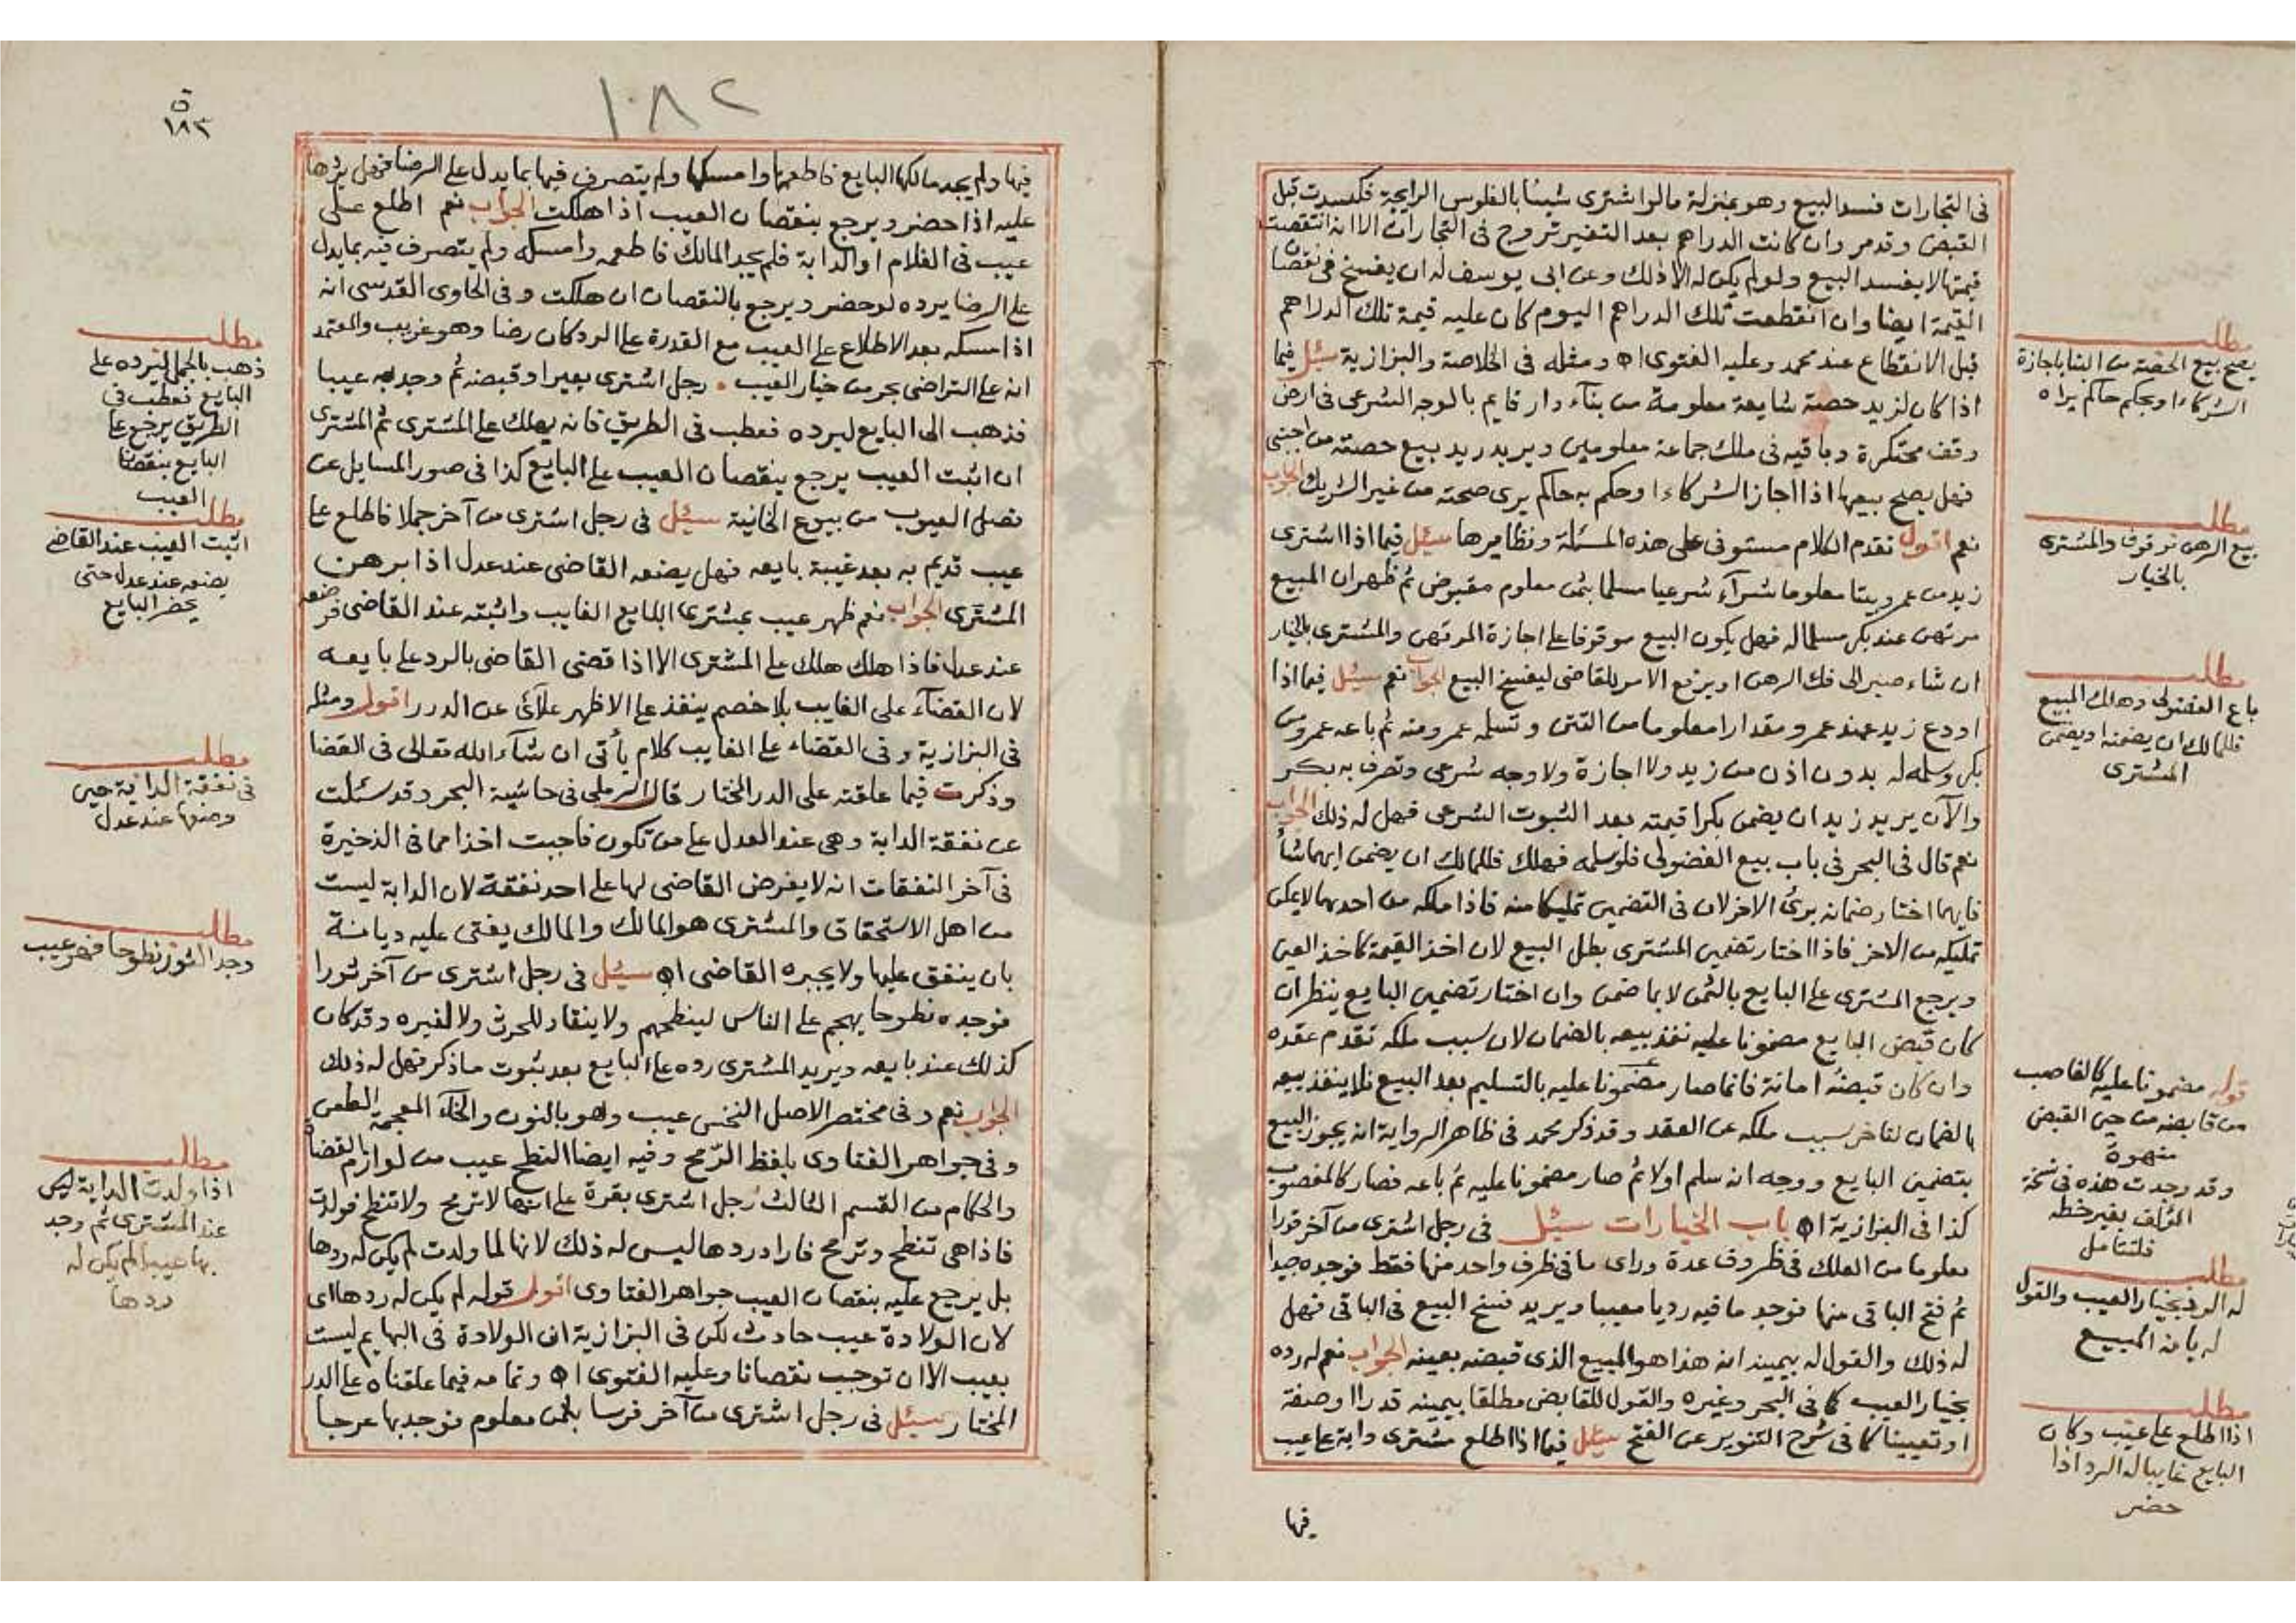 فى التجارات فسد البيع وهو بمنزلة ما لو اشترى شيئا بالفلوس الرايجة فكسدت قبل
القبض وقد مر وان كانت الدراهم بعد التغير تروج فى التجارات الا انه انتقصت
قيمتها لا يفسد البيع ولو لم يكن له الا ذلك وعن ابى يوسف له ان يفسخ فى نقصان
القيمة ايضا وان انقطعت تلك الدراهم اليوم كان عليه قيمة تلك الدراهم
قبل الانقطاع عند محمد وعليه الفتوى اه ومثله فى الخلاصة والبزازية سئل فيما
اذا كان لزيد حصة شايعة معلومة من بناء دار قايم بالوجه الشرعى فى ارض
وقف محتكرة وباقيه فى ملك جماعة معلومين ويريد زيد بيع حصته من اجنبى
فهل يصح بيعها اذا اجاز الشركاء او حكم به حاكم يرى صحته من غير الشريك الجواب
نعم اقول تقدم الكلام مستوفى على هذه المسئلة ونظايرها سئل فيما اذا اشترى
زيد من عمرو بيتا معلوما شرآء شرعيا مسلما بثمن معلوم مقبوض ثم ظهر ان المبيع
مرتهن عند بكر مسلما له فهل يكون البيع موقوفا على اجازة المرتهن والمشترى بالخيار
ان شاء صبر الى فك الرهن او يرفع الامر للقاضى ليفسخ البيع الجواب نعم سئل فيما اذا
اودع زيد عند عمرو مقدارا معلوما من التتن وتسلمه عمرو منه ثم باعه عمرو من
بكر وسلمه له بدون اذن من زيد ولا اجازة ولا وجه شرعى وتصرف به بكر
والآن يريد زيد ان يضمن بكرا قيمته بعد الثبوت الشرعى فهل له ذلك الجواب
نعم قال فى البحر فى باب بيع الفضولى فلو سلمه فهلك فللمالك ان يضمن ايهما شأ
فايهما اختار ضمانه برئ الاخر لان فى التضمين تمليكا منه فاذا ملكه من احدهما لا يمكن
تمليكه من الاخر فاذا اختار تضمين المشترى بطل البيع لان اخذ القيمة كاخذ العين
ويرجع المشترى على البايع بالثمن لا بما ضمن وان اختار تضمين البايع ينظر ان
كان قبض البايع مضمونا عليه نفذ بيعه بالضمان لان سبب ملكه تقدم عقده
وان كان قبضه امانة فانما صار مضمونا عليه بالتسليم بعد البيع فلا ينفذ بيعه
بالضمان لتاخر سبب ملكه عن العقد وقد ذكر محمد فى ظاهر الرواية انه يجوز البيع
بتضمين البايع ووجه انه سلم اولا ثم صار مضمونا عليه ثم باعه فصار كالمغصوب
كذا فى البزازية اه باب الخيارات سئل فى رجل اشترى من آخر قدرا
معلوما من العلك فى ظروف عدة وراى ما فى ظرف واحد منها فقط فوجده جيدا
ثم فتح الباقى منها فوجد ما فيه رديا معيبا ويريد فسخ البيع فى الباقى فهل
له ذلك والقول له بيمينه انه هذا هو المبيع الذى قبضه بعينه الجواب نعم له رده
بخيار العيب كما فى البحر وغيره والقول للقابض مطلقا بيمينه قدرا او صفة
او تعيينا كما فى شرح التنوير عن الفتح سئل فيما اذا اطلع مشترى دابة على عيب
فيها
مطلب
يصح بيع الحصة من البنا باجازة
الشركاء او بحكم حاكم يراه
مطلب
بيع الرهن موقوف والمشترى
بالخيار
مطلب
باع الفضولى وهلك المبيع
فللمالك ان يضمنه او يضمن
المشترى
قوله مضمونا عليه كالغاصب
من قابضه من حين القبض
منهوة
وقد وجدت هذه فى نسخة
المؤلف بغير خطه
فلتتامل
مطلب
له الرد بخيار العيب والقول
له بانه المبيع
مطلب
اذا اطلع على عيب وكان
البايع غايبا له الرد اذا
حضر
١٨٢
١٨٣
فيها ولم يجد مالكها البايع فاطعمها وامسكها ولم يتصرف فيها بما يدل على الرضا فهل يردها
عليه اذا حضر ويرجع بنقصان العيب اذا هلكت الجواب نعم اطلع على
عيب فى الغلام او الدابة فلم يجد المالك فاطعمه وامسكه ولم يتصرف فيه بما يدل
على الرضا يرده لو حضر ويرجع بالنقصان ان هلكت وفى الحاوى القدسى انه
اذا امسكه بعد الاطلاع على العيب مع القدرة على الرد كان رضا وهو غريب والمعتمد
انه على التراضى بحر من خيار العيب ۰ رجل اشترى بعيرا وقبضه ثم وجد به عيبا
فذهب الى البايع ليرده فعطب فى الطريق فانه يهلك على المشترى ثم المشترى
ان اثبت العيب يرجع بنقصان العيب على البايع كذا فى صور المسايل عن
فصل العيوب من بيوع الخانية سئل فى رجل اشترى من آخر جملا فاطلع على
عيب قديم به بعد غيبة بايعه فهل يضعه القاضى عند عدل اذا برهن
المشترى الجواب نعم ظهر عيب بمشرى البايع الغايب واثبته عند القاضى فوضعه
عند عدل فاذا هلك هلك على المشترى الا اذا قضى القاضى بالرد على بايعه
لان القضآء على الغايب بلا خصم ينفذ على الاظهر علائى عن الدرر اقول ومثله
فى البزازية وفى القضاء على الغايب كلام يأتى ان شآء الله تعالى فى القضا
وذكرت فيما علقته على الدر المختار قال الرملى فى حاشية البحر وقد سئلت
عن نفقة الدابة وهى عند العدل على من تكون فاجبت اخذا مما فى الذخيرة
فى آخر النفقات انه لا يفرض القاضى لها على احد نفقة لان الدابة ليست
من اهل الاستحقاق والمشترى هو المالك والمالك يفتى عليه ديانة
بان ينفق عليها ولا يجبره القاضى اه سئل فى رجل اشترى من آخر ثورا
فوجده نطوحا يهجم على الناس لينطحهم ولا ينقاد للحرث ولا لغيره وقد كان
كذلك عند بايعه ويريد المشترى رده على البايع بعد ثبوت ما ذكر فهل له ذلك
الجواب نعم وفى مختصر الاصل النخس عيب وهو بالنون والخآء المعجمة الطعن
وفى جواهر الفتاوى بلفظ الرّمح وفيه ايضا النطح عيب من لوازم القضاة
والحكام من القسم الثالث رجل اشترى بقرة على انها لا ترمح ولا تنطح فولدت
فاذا هى تنطح وترمح فاراد ردها ليس له ذلك لانها لما ولدت لم يكن له ردها
بل يرجع عليه بنقصان العيب جواهر الفتاوى اقول قوله لم يكن له ردها اى
لان الولادة عيب حادث لكن فى البزازية ان الولادة فى البهايم ليست
بعيب الا ان توجب نقصانا وعليه الفتوى اه وتمامه فيما علقناه على الدر
المختار سئل فى رجل اشترى من آخر فرسا بثمن معلوم فوجد بها عرجا
مطلب
ذهب بالجمل ليرده على
البايع فعطب فى
الطريق يرجع على
البايع بنقصان
العيب
مطلب
اثبت العيب عند القاضى
يضعه عند عدل حتى
يحضر البايع
مطلب
فى نفقة الدابة حين
وضعها عند عدل
مطلب
وجد الثور نطوحا فهو عيب
مطلب
اذا ولدت الدابة ليس
عند المشترى ثم وجد
بها عيبا لم يكن له
ردها